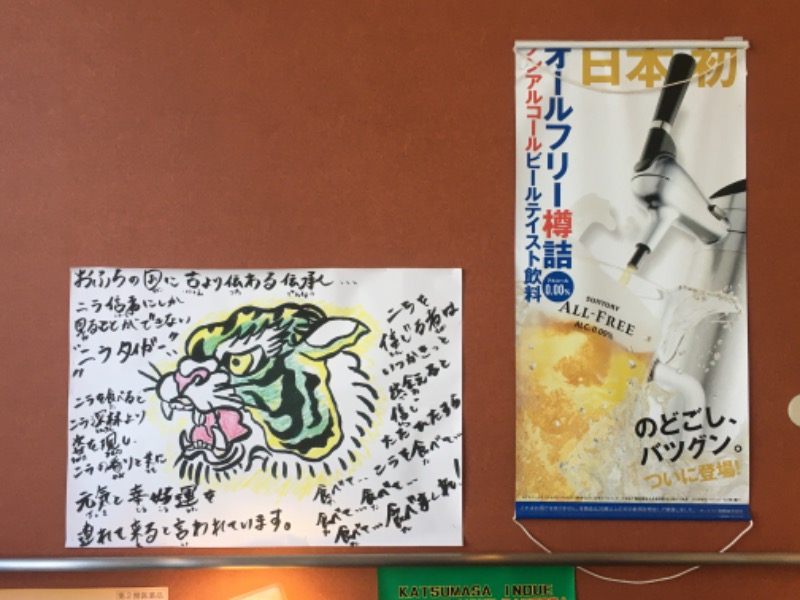 おふろの国に古より伝わる伝承し...
ニラ信者にしか
見ることができない
"ニラタイガー"
ニラを食べると
ニラ深林より
姿を現し
ニラの香りと共に
元気と幸せ運を
連れて来ると言われています。
ニラを
信じる者は
いつかきっと
出会えると
信じ
ただひたすら
ニラを食べて...
食べて... 食べて...
食べて... 食べまくれ!
日本初
オールフリー樽詰
ノンアルコールビールテイスト飲料
アルコール
0.00%
SUNTORY
ALL-FREE
ALC.0.00%
のどごし、
バツグン。
ついに登場!
第2類医薬品
KATSUMASA INOUE